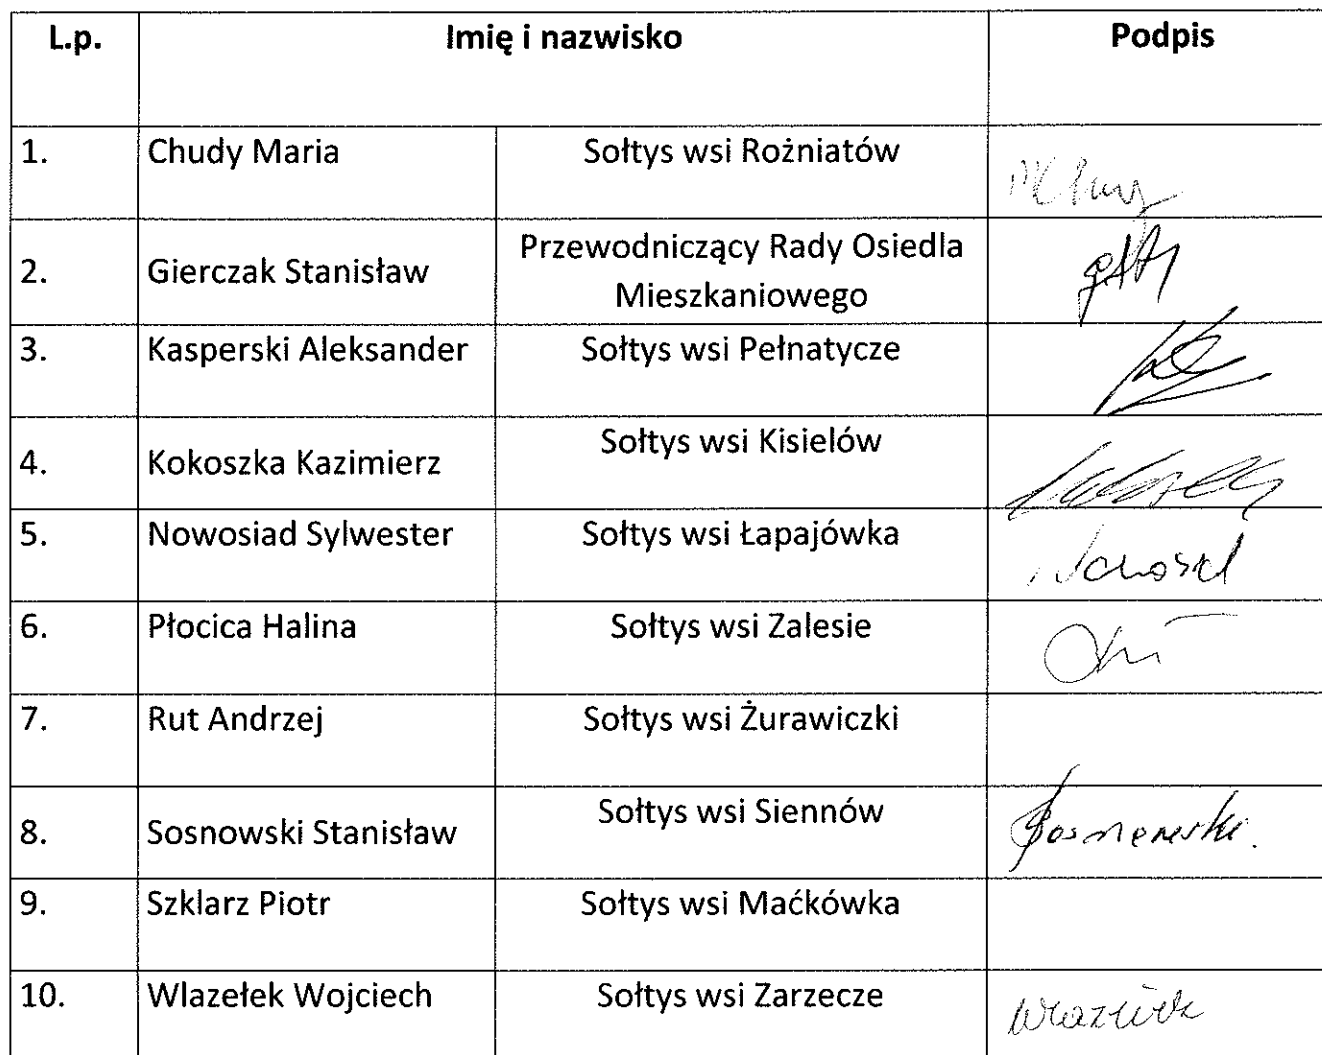 L.p. Imię i nazwisko Podpis
1. Chudy Maria Sołtys wsi Rożniatów
2. Gierczak Stanisław Przewodniczący Rady Osiedla
Mieszkaniowego
3. Kasperski Aleksander Sołtys wsi Pełnatycze
4. Kokoszka Kazimierz Sołtys wsi Kisielów
5. Nowosiad Sylwester Sołtys wsi Łapajówka
6. Płocica Halina Sołtys wsi Zalesie
7. Rut Andrzej Sołtys wsi Żurawiczki
8. Sosnowski Stanisław Sołtys wsi Siennów
9. Szklarz Piotr Sołtys wsi Maćkówka
10. Wlazełek Wojciech Sołtys wsi Zarzecze